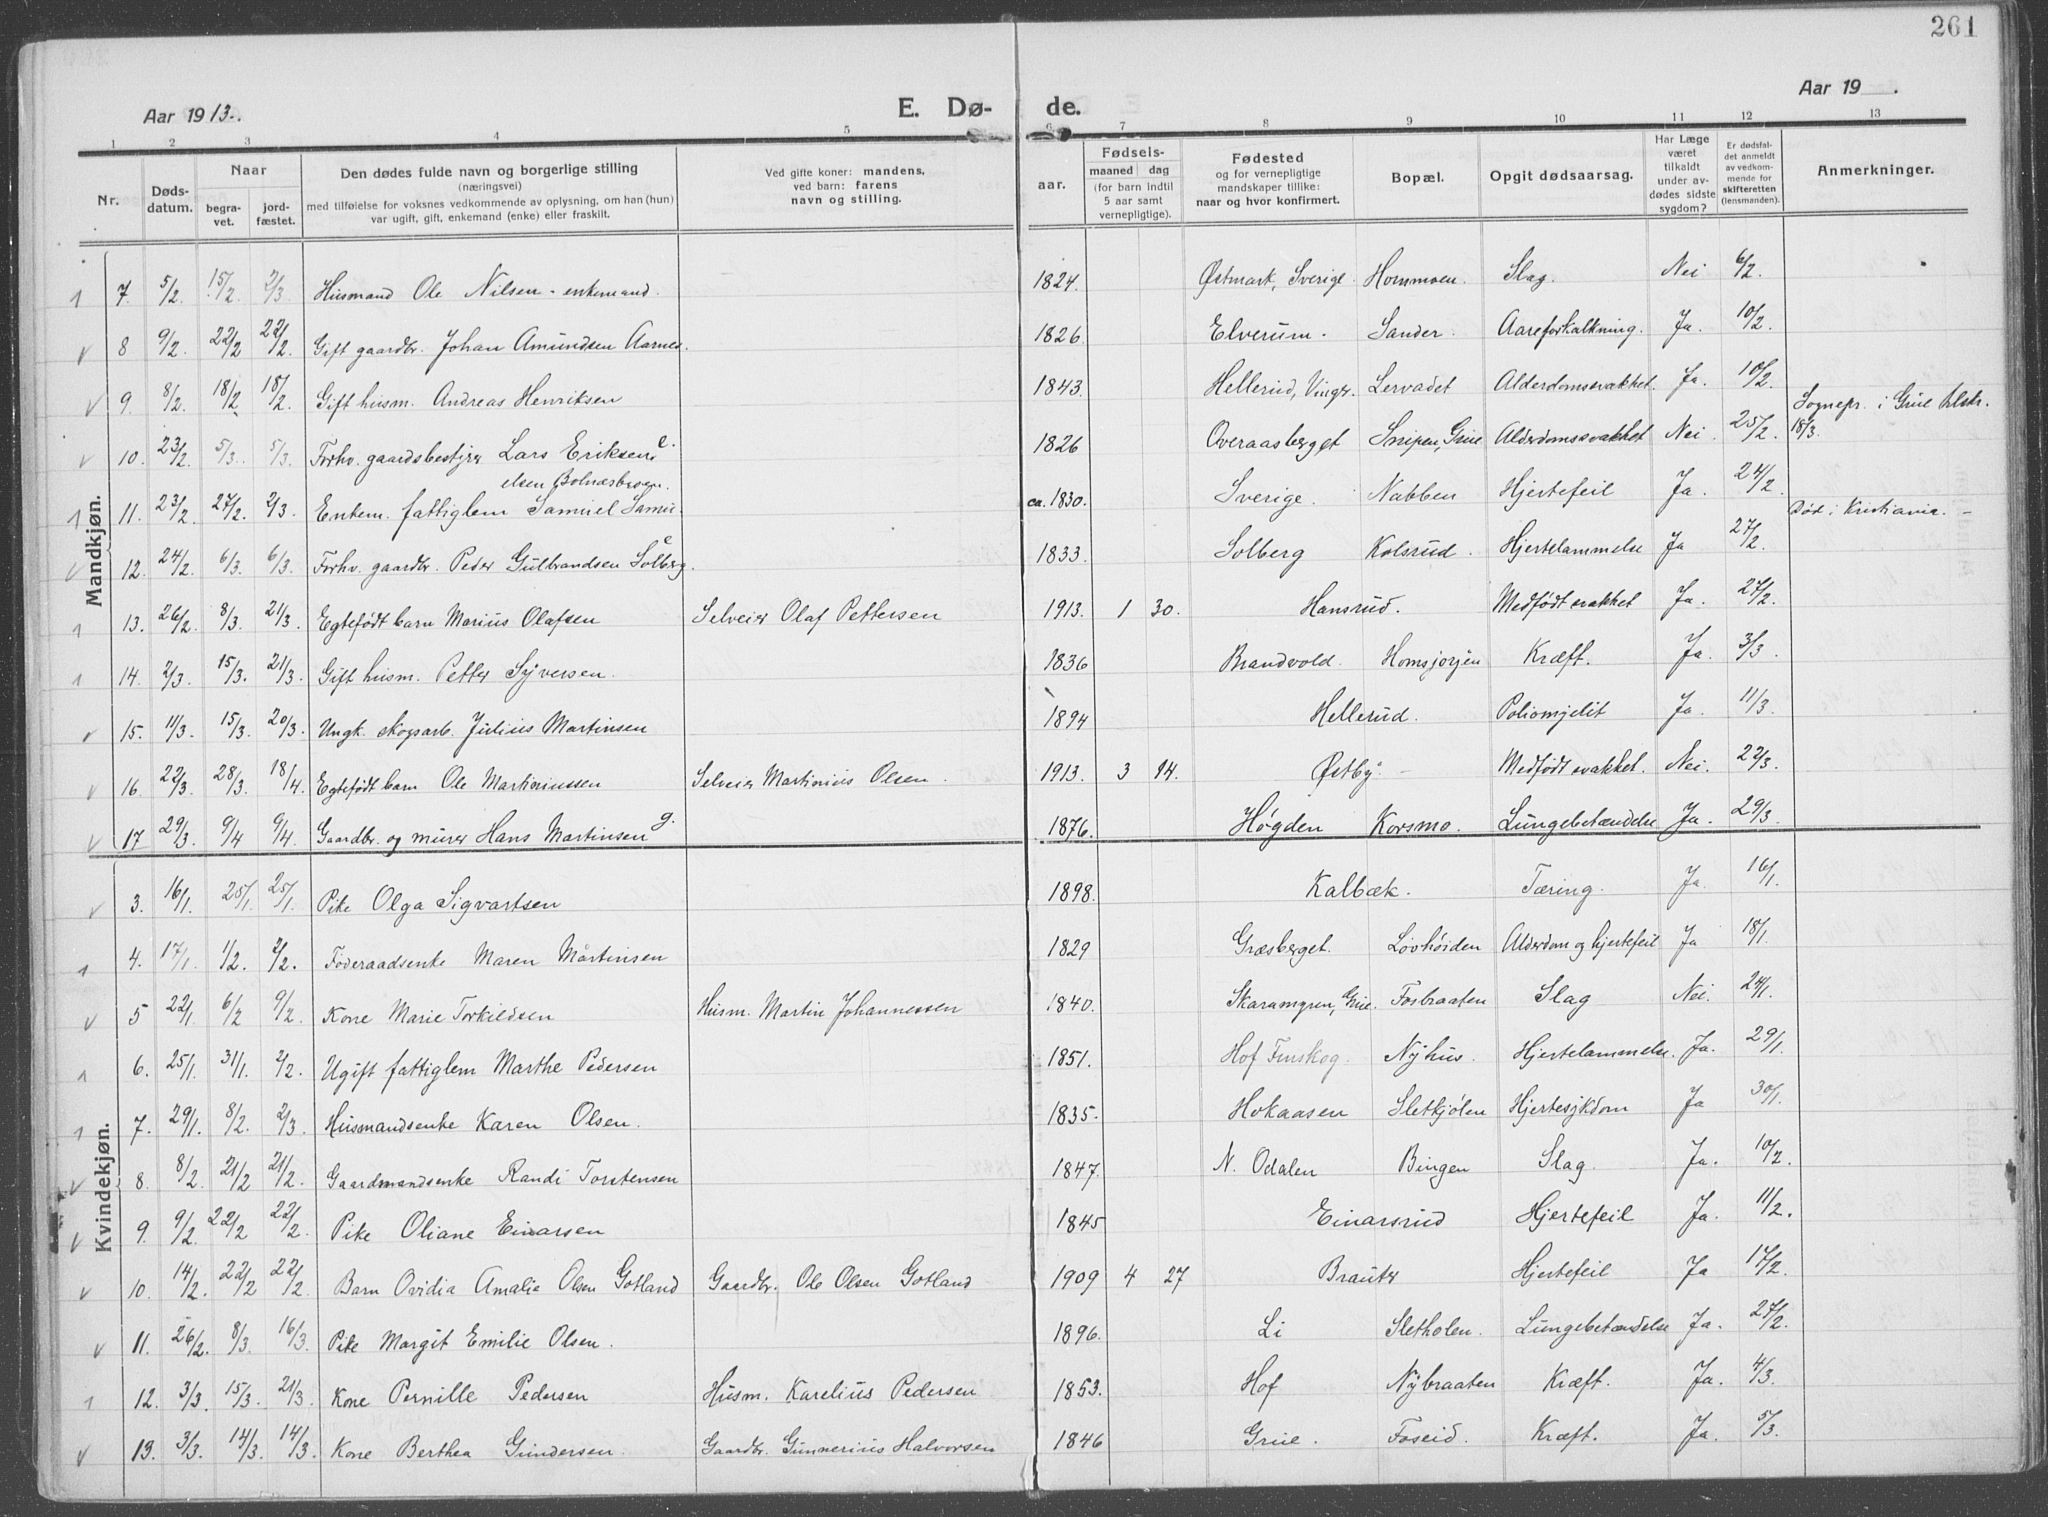 261
Aar 1913. E. Dø- de. Aar 19 .
1 2 3 4 5 6 7 8 9 10 11 12 13
Nr. Døds-datum. Naar begra-vet. jord-fæstet. Den dødes fulde navn og borgerlige stilling (næringsvei) med tilføielse for voksnes vedkommende av oplysning, om han (hun) var ugift, gift, enkemand (enke) eller fraskilt. Ved gifte koner: mandens, ved barn: farens navn og stilling. Fødsels- aar. maaned dag (for barn indtil 5 aar samt vernepligtige). Fødested og for vernepligtige mandskaper tillike: naar og hvor konfirmert. Bopæl. Opgit dødsaarsag. Har Læge været tilkaldt under av-dødes sidste sygdom? Er dødsfal-det anmeldt av vedkom-mende for skifteretten (lensmanden). Anmerkninger.
Mandkjøn.
1 7. 5/2. 15/2. 2/3 Husmand Ole Nilsen - enkemand. 1824. Østmark, Sverige. Hommoen. Slag. Nei 6/2.
v 8 9/2. 22/2 22/2. Gift gaardbr. Johan Amundsen Aarnes. 1826. Elverum. Sander. Aareforkalkning. Ja. 10/2.
v 9. 8/2. 18/2 18/2. Gift husm. Andreas Henriksen 1843. Hellerud, Vinger. Lervadet Alderdomssvakhet. Ja. 10/2.
v 10. 23/2. 5/3. 5/3. Forhv. gaardsbestyrer Lars Eriksen e. 1826 Overaasberget Snipen, Grue Alderdomssvakhet Nei. 25/2. Sognepr. i Grue tilskr. 18/3.
1 11. 23/2. 27/2. 2/3. Enkem. fattiglem Samuel Samu-elsen Bolnæsbroen. ca. 1830. Sverige. Nabben Hjertefeil Ja. 24/2.
v 12. 24/2. 6/3. 6/3. Forhv. gaardbr. Peder Gulbrandsen Solberg. e 1833. Solberg Kolsrud. Hjertelammelse Ja 27/2. Død i Kristiania. -
1 13. 26/2. 8/3. 21/3. Egtefødt barn Marius Olafsen Selveier Olaf Pettersen 1913. 1 30. Hansrud. Medfødt svakhet Ja. 27/2.
1 14. 2/3. 15/3. 21/3. Gift husm. Petter Syversen. 1836 Brandvold. Homsjorjen Kræft. Ja. 3/3.
v 15. 11/3. 15/3. 20/3. Ungk. skogsarb. Julius Martinsen 1894 Hellerud. Poliomyelit Ja. 11/3.
v 16. 22/3. 28/3. 18/4. Egtefødt barn Ole Martiniussen Selveier Martinius Olsen. 1913. 3 14. Østby. - Medfødt svakhet. Nei. 22/3.
v 17 29/3. 9/4 9/4. Gaardbr. og murer Hans Martinsen g. 1876. Høgden Korsmo. Lungebetændelse Ja. 29/3.
Kvindekjøn.
v 3. 16/1. 25/1. 25/1. Pike Olga Sigvartsen 1898. Kalbæk. Tæring. Ja. 16/1.
1 4. 17/1. 1/2. 2/2. Føderaadsenke Maren Mårtinsen 1829 Græsberget. Løvhøiden Alderdom og hjertefeil Ja 18/1.
v 5 22/1. 6/2 9/2. Kone Marie Torkildsen Husm. Martin Johannessen 1840. Grue. Fosbraaten Slag Nei. 24/1.
1 6. 25/1. 31/1. 2/2. Ugift fattiglem Marthe Pedersen 1851. Hof Finskog. Nyhus. Hjertelammelse. Ja. 29/1.
1 7. 29/1. 8/2. 2/3. Husmandsenke Karen Olsen. 1835. Hokaasen Sletkjølen Hjertesykdom Ja 30/1.
v 8. 8/2. 21/2 21/2. Gaardmandsenke Randi Torstensen 1847. N. Odalen Bingen Slag. Ja. 10/2.
v 9. 9/2. 22/2 22/2. Pike Oliane Einarsen 1845 Einarsrud Hjertefeil Ja. 11/2.
v 10. 14/2. 22/2 22/2. Barn Ovidia Amalie Olsen Gotland Gaardbr. Ole Olsen Gotland 1909 4 27 Brauter Hjertefeil Ja 17/2.
v 11. 26/2. 8/3. 16/3. Pike Margit Emilie Olsen. 1896. Li Sletholen. Lungebetændelse Ja. 27/2.
1 12. 3/3. 15/3. 21/3. Kone Pernille Pedersen Husm. Karelius Pedersen 1853. Hof Nybraaten Kræft. Ja. 4/3.
v 13. 3/3. 14/3. 14/3. Kone Berthea Gundersen. Gaardbr. Gunnerius Halvorsen 1846 Grue. Foseid. Kræft. Ja. 5/3.